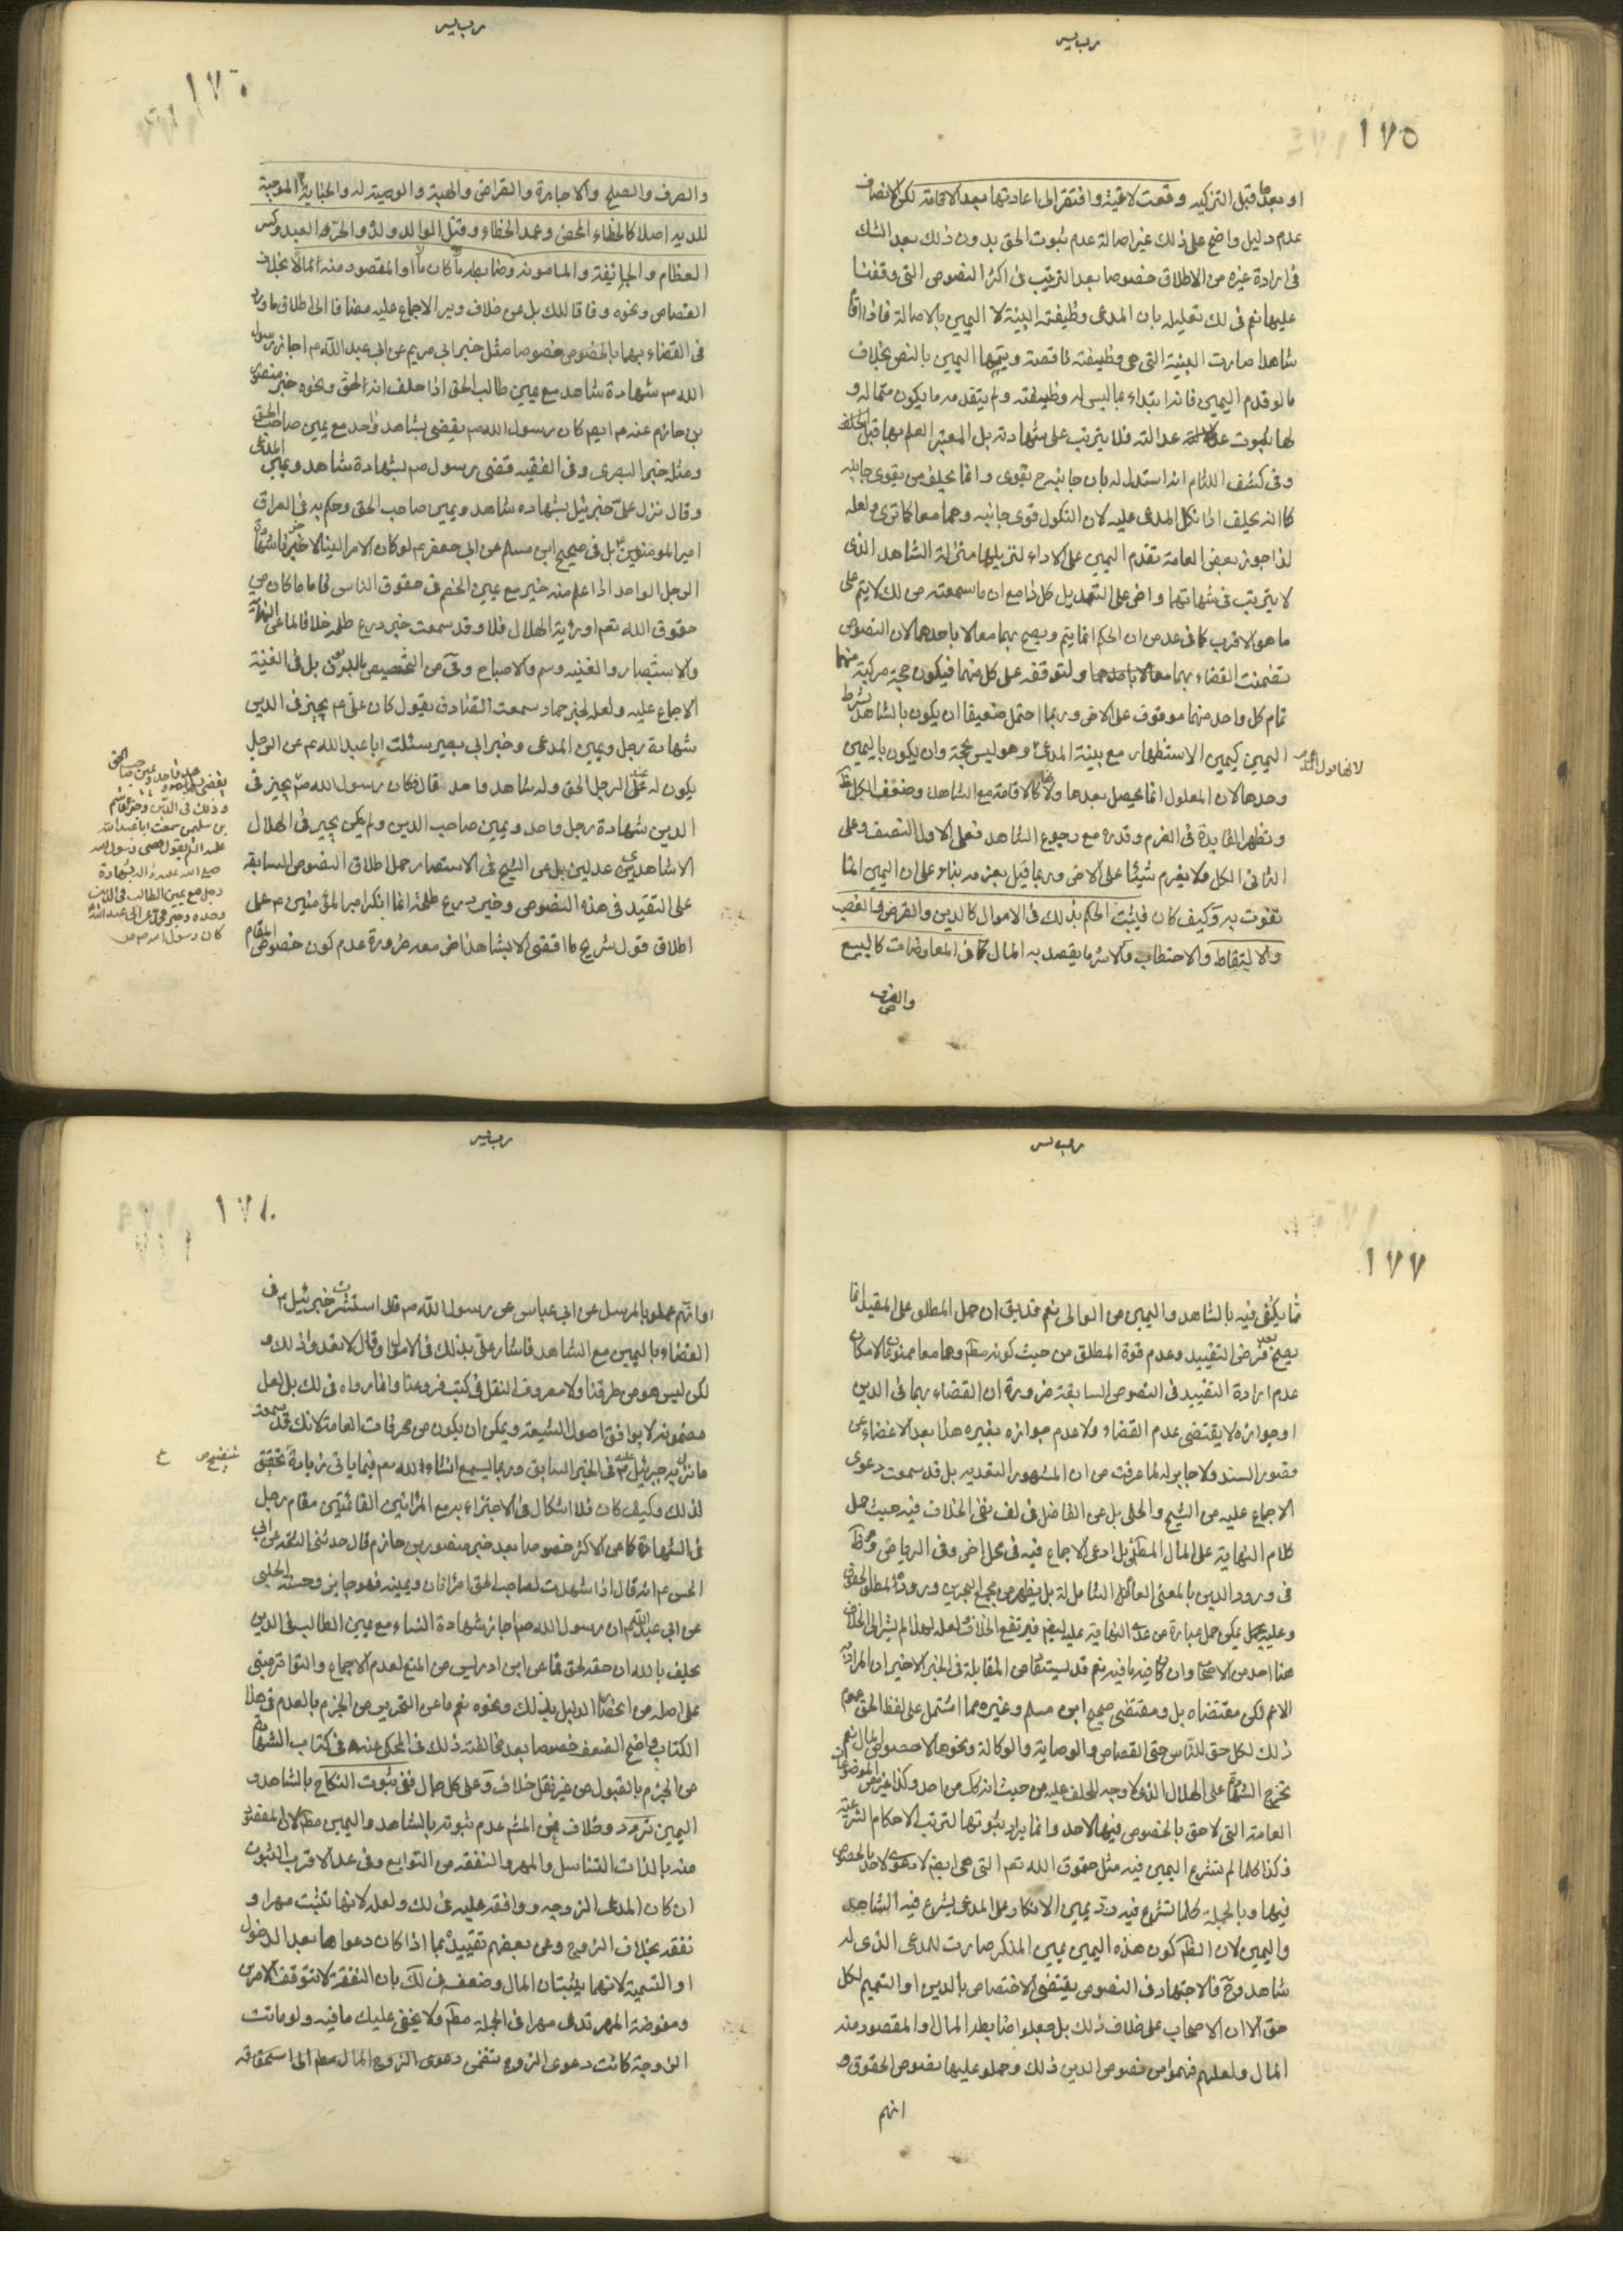 ١٧٥
او بعدها قبل التزكيه وقعت لاغية وافتقر الى اعادتها بعد الاقامة لكن الانصاف
عدم دليل واضح على ذلك غير اصالة عدم ثبوت الحق بدون ذلك بعد الشك
فى ارادة غيره من الاطلاق خصوصا بعد الترتيب فى اكثر النصوص التى وقفنا
عليها نعم فى لك تعليله بان المدعى وظيفته البينة لا اليمين بالاصالة فاذا اقام
شاهدا صارت البينة التى هى وظيفته ناقصة ويتمها اليمين بالنص بخلاف
ما لو قدم اليمين فانه ابتداء بما ليس له وظيفته ولم يتقدمه ما يكون متما له و
عدالته فلا يترتب على شهادته بل المعتبر العلم بها قبل الحلف
وفى كشف اللثام انه استدل له بان جانبه ح يقوى وانما يحلف من يقوى جانبه
كما انه يحلف اذا نكل المدعى عليه لان النكول قوى جانبه وهما معا كما ترى ولعله
لذا جوز بعض العامة تقدم اليمين على الاداء لتنزيلهما منزلة الشاهد الذى
لا يترتب فى شهادتهما واخر على التعديل كل ذا مع ان ما سمعته من لك لا يتم على
ما هو الاقرب كما فى عد من ان الحكم انما يتم ويصح بهما معا لا باحدهما لان النصوص
تضمنت القضاء بهما معا لا باحدهما ولتوقف عمل كل منهما فيكون حجة مركبة منهما
تمام كل واحد منهما موقوف على الاخر وربما احتمل ضعيفا ان يكون بالشاهد بشرط
اليمين كيمين الاستظهار مع بينة المدعى وهو ليس بحجة وان يكون باليمين
وحدها لان المعلول انما يحصل بعدها ولانها كالاقامة مع الشاهد وضعف الكل ظ
وتظهر الفايدة فى الغرم وقدره مع رجوع الشاهد فعلى الاول النصف وعلى
الثانى الكل ولا يغرم شيئا على الاخر وربما قيل بغرمه بناء على ان اليمين انما
تفوت به وكيف كان فيثبت الحكم بذلك فى الاموال كالدين والقرض والغصب
والالتقاط والاحتطاب والاسر ما يقصد به المال كما فى المعاوضات كالبيع
والصرف
١٧٦
والصرف والصلح والاجارة والقراض والهبة والوصية له والجناية الموجبة
للدية اصلا كالخطاء المحض وعمد الخطاء وقتل الوالد ولده والحر العبد وكسر
العظام والجائفة والمامومة وضابطه ما كان مالا او المقصود منه مالا بخلاف
القصاص ونحوه وفاقا للك بل عن خلاف وير الاجماع عليه مضافا الى اطلاق ما ورد
فى القضاء بهما بالخصوص خصوصا مثل خبر ابى مريم عن ابى عبد الله ع اجاز رسول
الله ص شهادة شاهد مع يمين طالب الحق اذا حلف انه الحق ونحوه خبر منصور
بن حازم عنه ع ايم كان رسول الله ص يقضى بشاهد واحد مع يمين صاحب الحق
ومثله خبر البصرى وفى الفقيه قضى رسول ص بشهادة شاهد ويمين المدعى
وقال نزل على جبرئيل بشهاده شاهد ويمين صاحب الحق وحكم به فى العراق
امير المومنين ع بل فى صحيح ابن مسلم عن ابى جعفر ع لو كان الامر الينا لاجزنا شهادة
الرجل الواحد اذا علم منه خير مع يمين الخصم فى حقوق الناس فاما ما كان من
حقوق الله تعم او رؤية الهلال فلا وقد سمعت خبر درع طلحه خلافا لما عن النهاية
والاستبصار والغنيه وسم والاصباح وفى من التخصيص بالدين بل فى الغنية
الاجماع عليه ولعله لخبر حماد سمعت الصادق يقول كان على ع يجيز فى الدين
شهادة رجل ويمين المدعى وخبر ابى بصير سئلت ابا عبد الله ع عن الرجل
يكون له على الرجل الحق وله شاهد واحد قال فكان رسول الله ص يجيز فى
الدين شهادة رجل واحد ويمين صاحب الدين ولم يكن يجيز فى الهلال
الا شاهدين عدلين بل عن الشيخ فى الاستبصار حمل اطلاق النصوص السابقة
على التقييد فى هذه النصوص وخبر درع طلحة انما انكر امير المؤمنين ع على
اطلاق قول شريح ما اقضى الا بشاهد اخر معه ضرورة عدم كون خصوص المقام
يقضى بشاهد واحد ويمين صاحب الحق
وذلك فى الدين وخبر القاسم
بن سليمن سمعت ابا عبد الله
عليه السلم يقول قضى رسول الله
صلى الله عليه واله بشهادة
رجل مع يمين الطالب فى الدين
وحده وخبر عن ابى عبد الله
كان رسول الله ص
١٧٧
مما يكتفى فيه بالشاهد واليمين من الوالى نعم قد يق ان حمل المطلق على المقيد انما
يصح بعد فرض التقييد وعدم قوة المطلق من حيث كونه مطلقا وهما معا ممنوعان لامكان
عدم ارادة التقييد فى النصوص السابقة ضرورة ان القضاء بهما فى الدين
او جوازه لا يقتضى عدم القضاء ولا عدم جوازه بغيره هذا بعد الاغضاء عن
قصور السند ولا جابر له لما عرفت من ان المشهور التعديه بل قد سمعت دعوى
الاجماع عليه من الشيخ والحلى بل عن الفاضل فى لف نفى الخلاف فيه حيث حمل
كلام النهاية على المال المطلق بل ادعى الاجماع فيه فى محل اخر وفى الرياض
فى ورود الدين بالمعنى العام الشامل له بل يظهر من مجمع البحرين وروده لمطلق الحقوق
وعليه يمكن حمل عبارة النهاية عليه ايضا فيرتفع الخلاف ولعله لهذا لم يشر الى الخلاف
هنا احد من الاصحاب وان كان فيه ما فيه نعم قد يستفاد من المقابلة فى الخبر الاخير ان المراد به
الاعم لكن مقتضاه بل ومقتضى صحيح ابن مسلم وغيره مما اشتمل على لفظ الحق عموم
ذلك لكل حق للناس حتى القصاص والوصاية والوكالة ونحوها لا خصوص المال نعم
تخرج الشهادة على الهلال الذى لا وجه للحلف عليه من حيث اشتراكه من احد وكذا غيره من الموضوعات
العامة التى لا حق بالخصوص فيها لاحد وانما يراد ثبوتها لترتب الاحكام الشرعية
فكذا كلما لم يتشرع اليمين فيه مثل حقوق الله تعم التى هى ايضا لا دعوى لاحد بالخصوص
فيها وبالجملة كلما تشرع فيه رد يمين الانكار على المدعى يشرع فيه الشاهد
واليمين لان الظ كون هذه اليمين يمين المنكر صارت للمدعى الذى له
شاهد وح فالاجتهاد فى النصوص يقتضى الاختصاص بالدين او التعميم لكل
حق الا ان الاصحاب على خلاف ذلك بل جعلوا ضابطه المال او المقصود منه
المال ولعلهم فهموا من نصوص الدين ذلك وحملوا عليها نصوص الحقوق و
انهم
١٧٨
او انهم عملوا بالمرسل عن ابن عباس عن رسول الله ص قال استشرت جبرئيل ع فى
القضاء باليمين مع الشاهد فاشار على بذلك فى الاموال وقال لا تعدوا ذلك و
لكن ليس هو من طرقنا ولا معروف النقل فى كتب فروعنا وانما رواه فى لك بل لعل
مضمونه لا يوافق اصول الشيعة ويمكن ان يكون من محرفات العامة لانك قد سمعت
ما نزل به جبرئيل ع فى الخبر السابق وربما يسمع انشاء الله تعم فيما ياتى زيادة تحقيق
لذلك وكيف كان فلا اشكال فى الاجتزاء به مع المراتين القائمتين مقام رجل
فى الشهادة كما عن الاكثر خصوصا بعد خبر منصور بن حازم قال حدثنى الثقة عن ابى
الحسن ع انه قال اذا شهدت لصاحب الحق امراتان ويمينه فهو جايز وحسنة الحلبى
عن ابى عبد الله ع ان رسول الله ص اجاز شهادة النساء مع يمين الطالب فى الدين
يحلف بالله ان حقه لحق فما عن ابن ادريس من المنع لعدم الاجماع والتواتر مبنى
على اصله من انحصار الدليل بذلك ونحوه نعم ما عن التحرير من الجزم بالعدم فى هذا
الكتاب واضح الضعف خصوصا بعد مخالفته ذلك فى المحكى عنه فى كتاب الشهادة
من الجزم بالقبول من غير نقل خلاف وعلى كل حال ففى ثبوت النكاح بالشاهد و
اليمين تردد وخلاف فعن المشهور عدم ثبوته بالشاهد واليمين مطلقا لان المقصود
منه بالذات التناسل والمهر والنفقة من التوابع وفى عد الاقرب الثبوت
ان كان المدعى الزوجه ووافقه عليه فى لك ولعله لانها تثبت مهرا و
نفقه بخلاف الزوج وعن بعضهم تقييده بما اذا كان دعواها بعد الدخول
او التسمية لانهما يثبتان المال وضعف فى لك بان النفقة لا تتوقف على الامرين
ومفوضة المهر تدعى مهرا فى الجملة مطلقا ولا يخفى عليك ما فيه ولو ماتت
الزوجة كانت دعوى الزوج تتضمن دعوى الزوج المال مطلقا الى استحقاقه